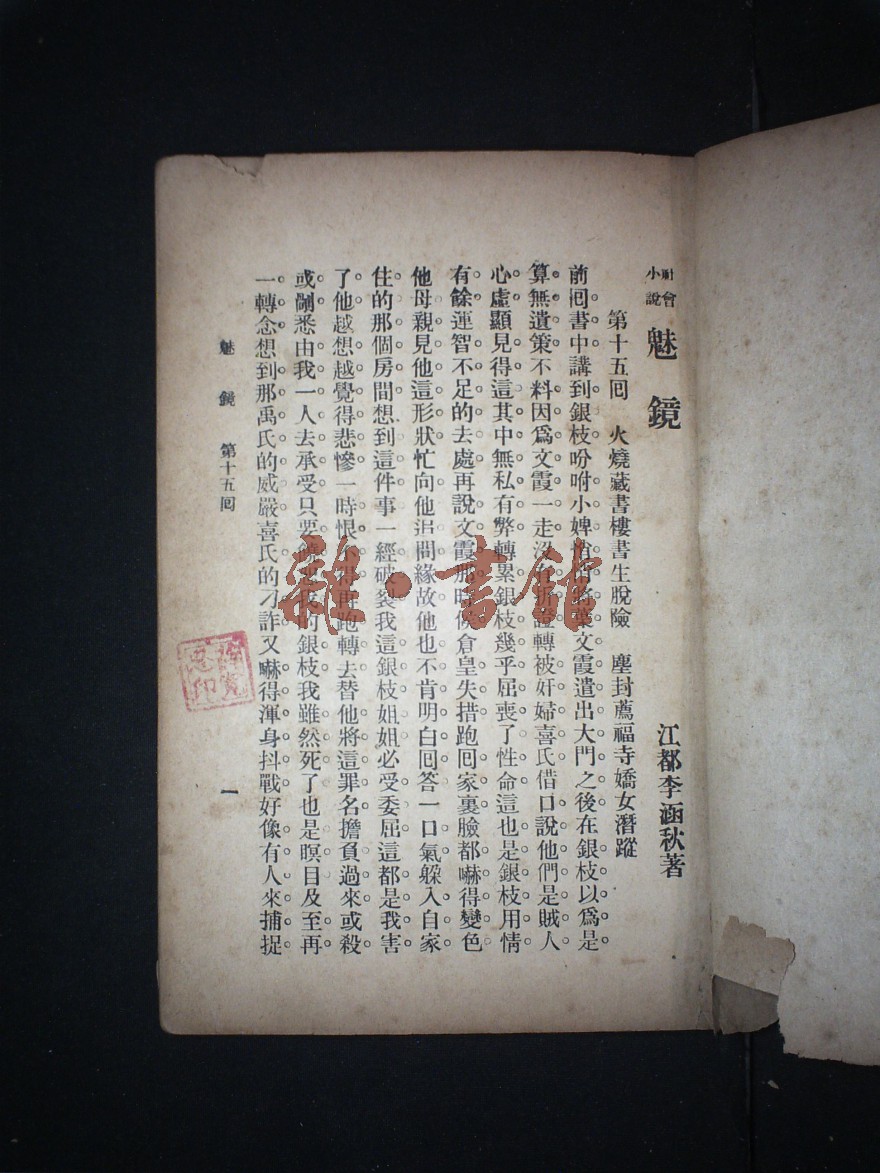 社會小說 魅鏡
江都李涵秋著
第十五囘 火燒藏書樓書生脫險 塵封薦福寺嬌女潛蹤
前囘書中講到銀枝吩咐小婢悄悄將葉文霞遣出大門之後在銀枝以爲是
算無遺策不料因爲文霞一走沒有折證轉被奸婦喜氏借口說他們是賊人
心虛顯見得這其中無私有弊轉累銀枝幾乎屈喪了性命這也是銀枝用情
有餘運智不足的去處再說文霞那時候倉皇失措跑回家裏臉都嚇得變色
他母親見他這形狀忙向他追問緣故他也不肯明白回答一口氣躱入自家
住的那個房間想到這件事一經破裂我這銀枝姐姐必受委屈這都是我害
了他越想越覺得悲慘一時恨不得再跑轉去替他將這罪名擔負過來或殺
或剮悉由我一人去承受只要饒恕我的銀枝我雖然死了也是暝目及至再
一轉念想到那禹氏的威嚴喜氏的刁詐又嚇得渾身抖戰好像有人來捕捉
魅鏡 第十五囘 一
雜·書館